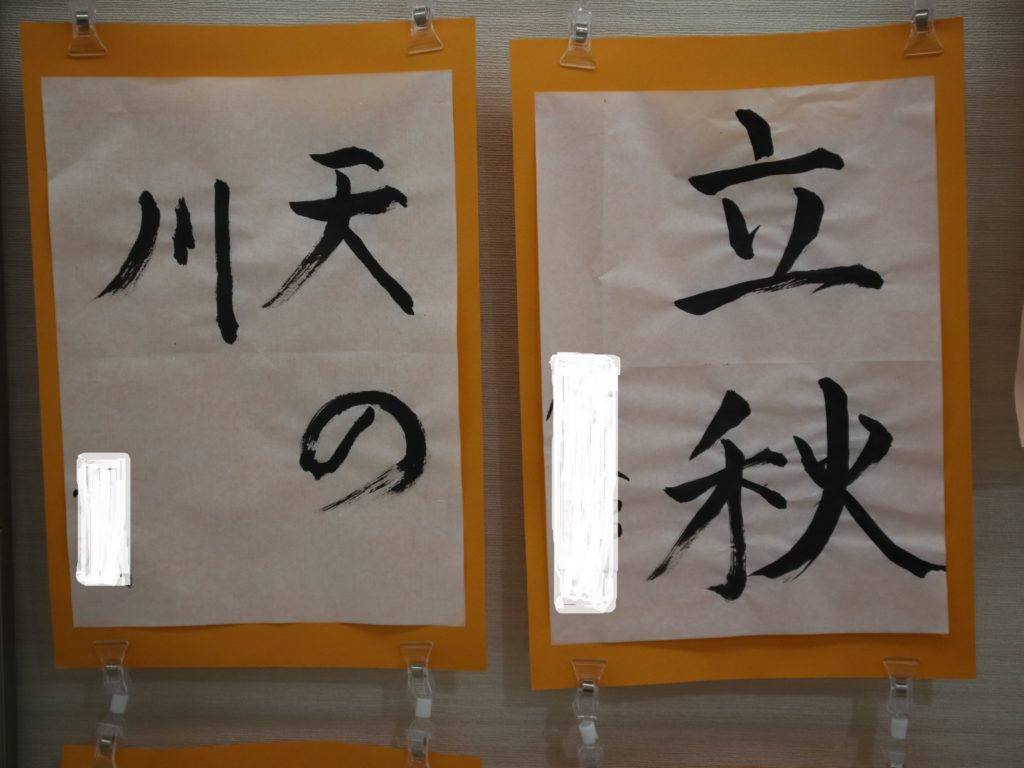 天の
川
立秋